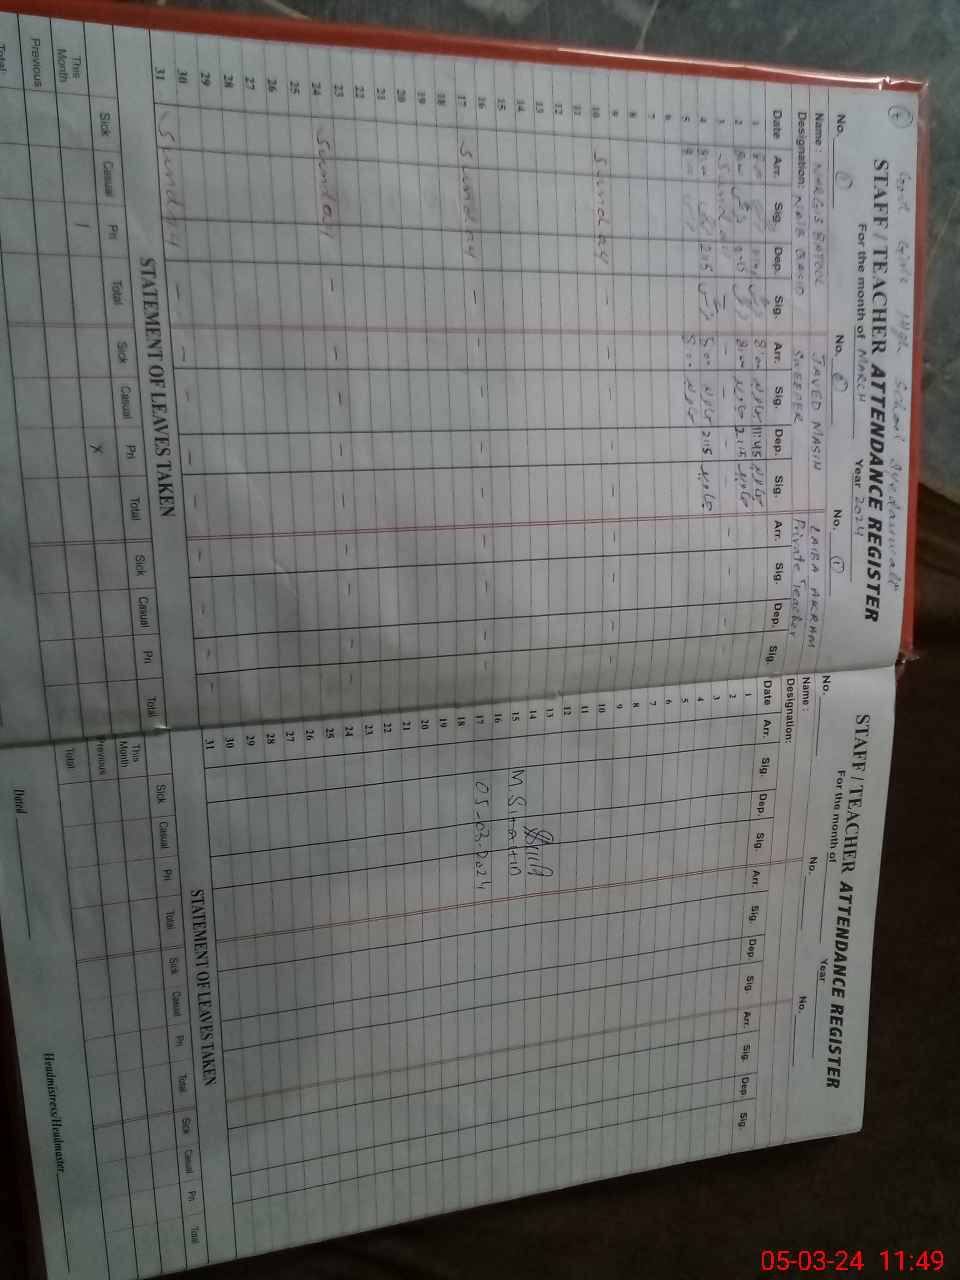 Govt Girls High School
STAFF / TEACHER ATTENDANCE REGISTER
For the month of MARCH Year 2024
No. 1 No. 2 No.
Name: NARGIS BATOOL JAVED MASIH LAIBA AKRAM
Designation: NAIB QASID SWEEPER Private Teacher
Date Arr. Sig. Dep. Sig. Arr. Sig. Dep. Sig. Arr. Sig. Dep. Sig.
1 8:00 11:45
2 8:00 2:15 8:00 2:15
3 Sunday - - - - - - -
4 8:00 2:15 8:00 2:15
5 8:00 8:00
6
7
8
9
10 Sunday - - - - - - - - -
11
12
13
14
15
16
17 Sunday - - - - - - - - -
18
19
20
21
22
23
24 Sunday - - - - - - - - -
25
26
27
28
29
30
31 Sunday - - - - - - - - -
STATEMENT OF LEAVES TAKEN
Sick Casual Pri Total Sick Casual Pri Total Sick Casual Pri Total
This Month 1 X
Previous
Total:
STAFF / TEACHER ATTENDANCE REGISTER
For the month of Year
No. No. No.
Name:
Designation:
Date Arr. Sig. Dep. Sig. Arr. Sig. Dep. Sig. Arr. Sig. Dep. Sig.
1
2
3
4
5
6
7
8
9
10
11
12
13
14
15
16
17 05-03-2024
18
19
20
21
22
23
24
25
26
27
28
29
30
31
STATEMENT OF LEAVES TAKEN
Sick Casual Pri Total Sick Casual Pri Total Sick Casual Pri Total
This Month
Previous
Total
Dated Headmistress/Headmaster
05-03-24 11:49